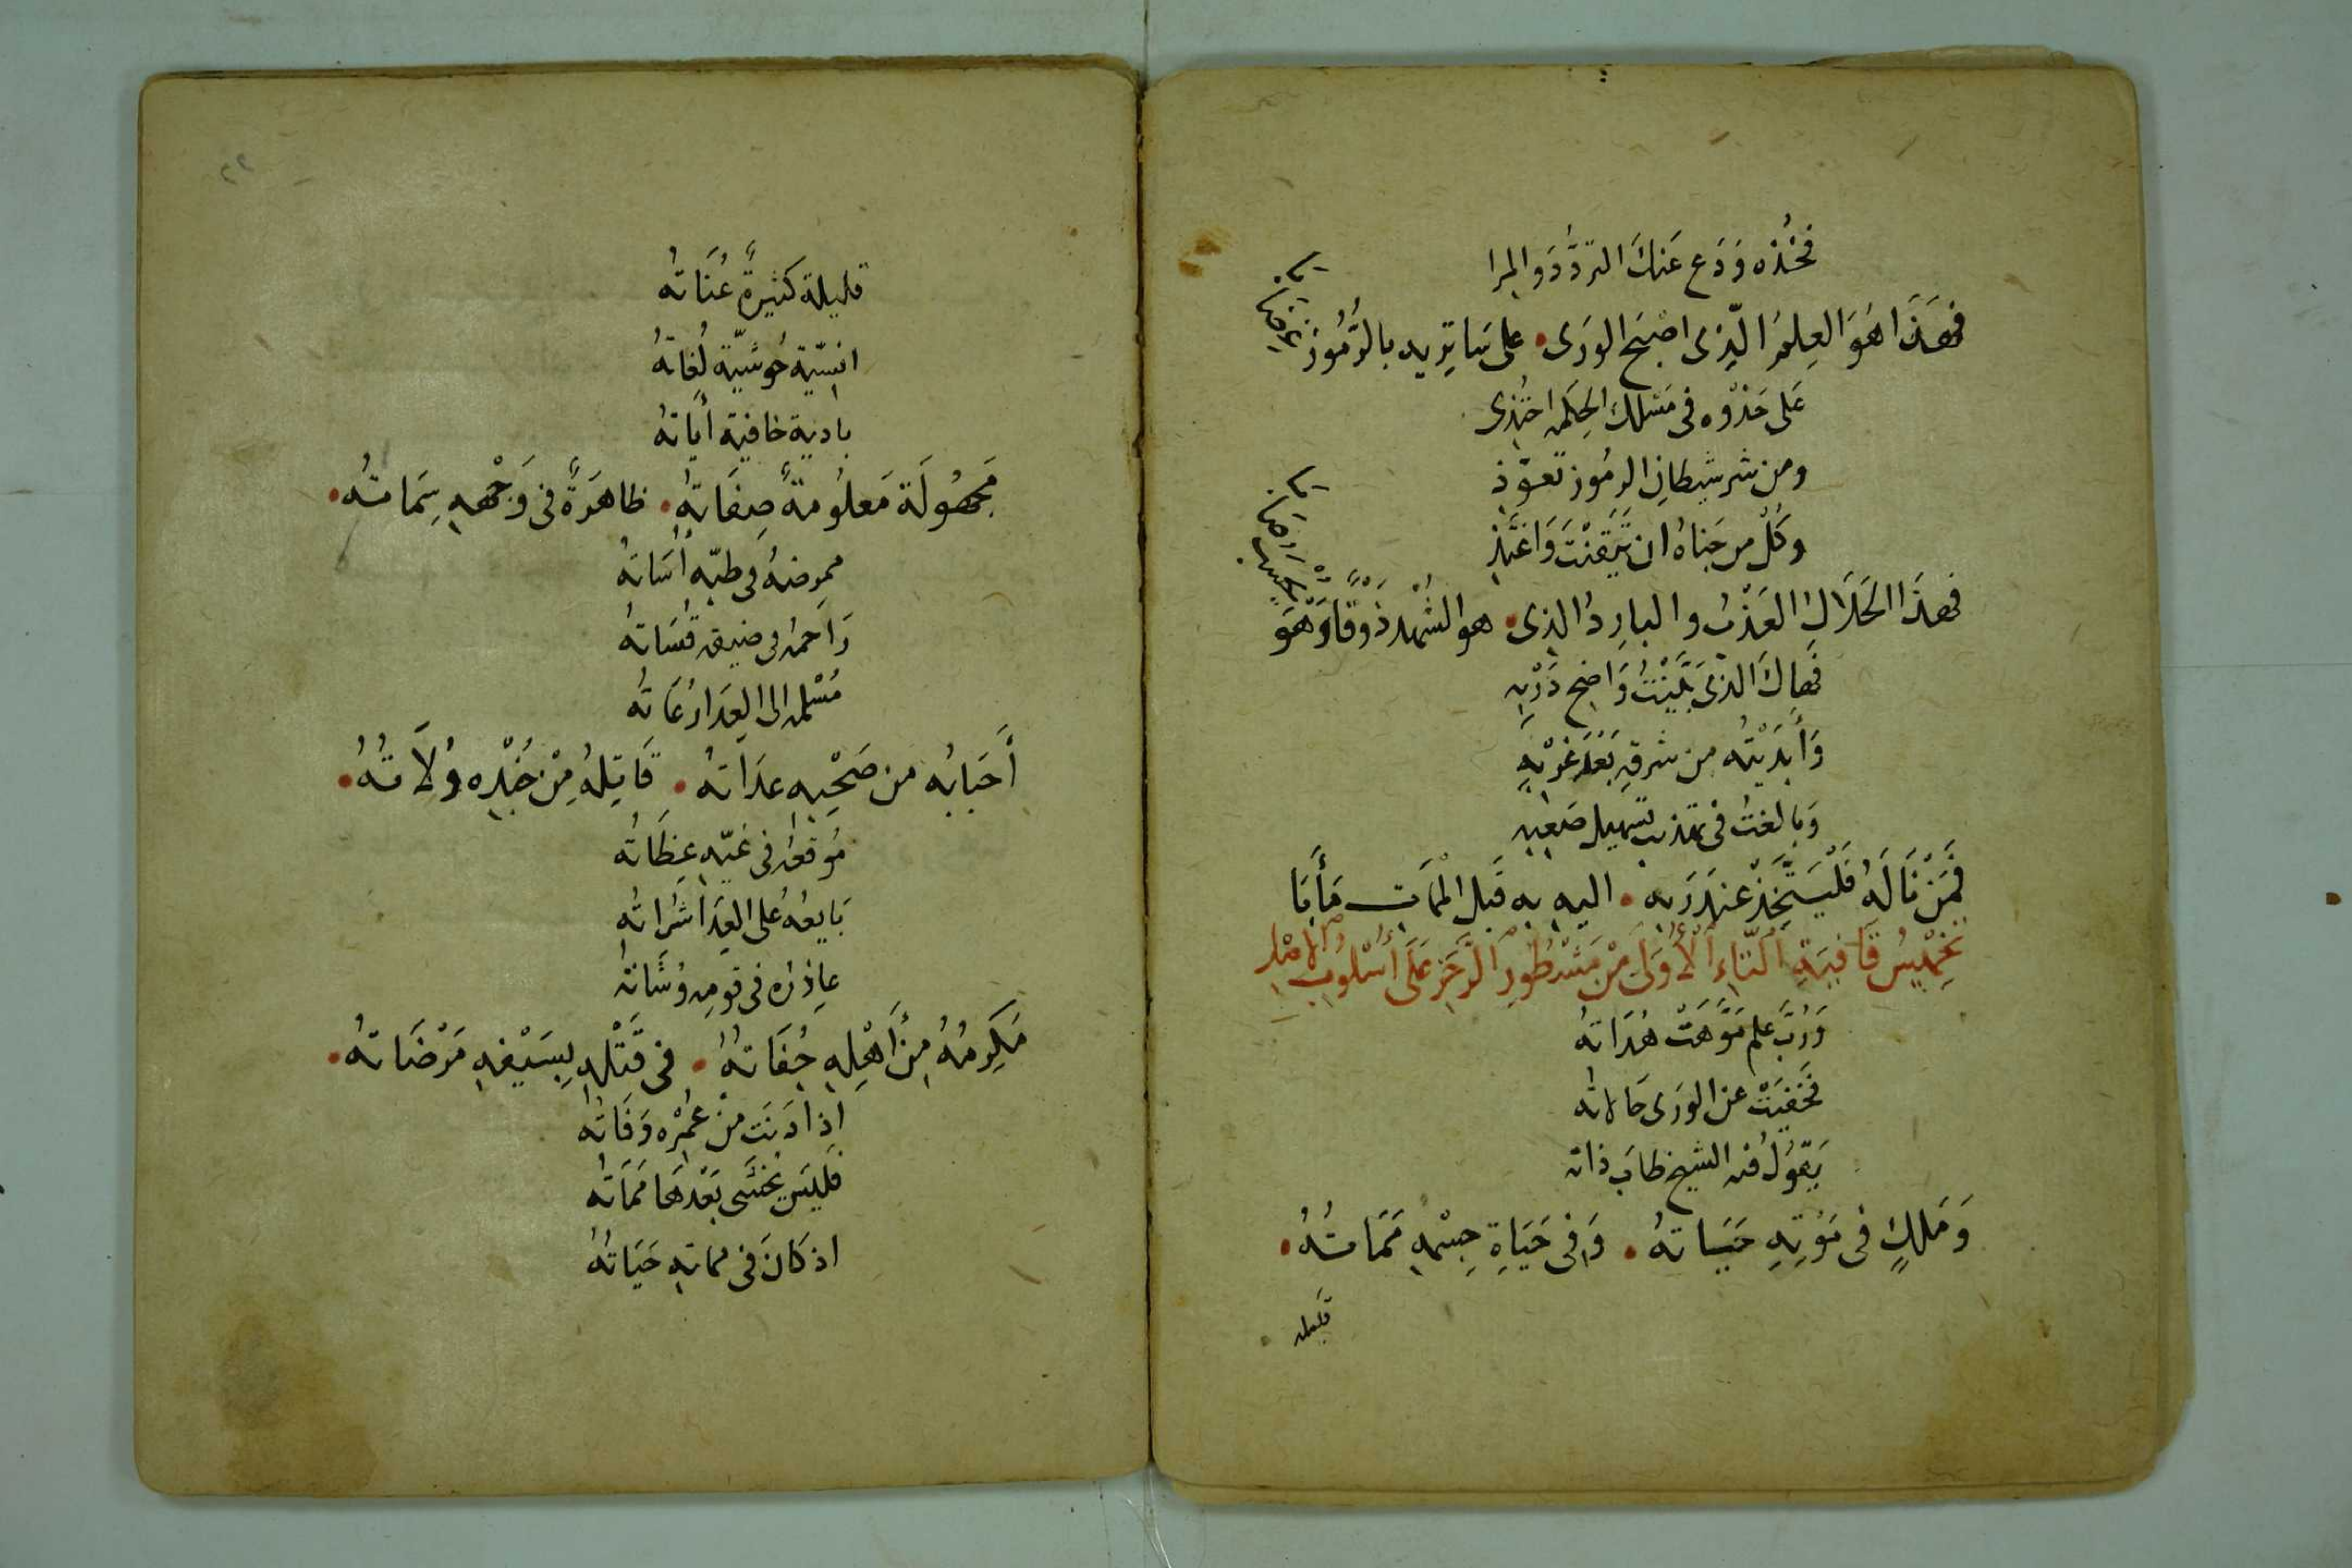 فخذه ودع عنك التردد والمرا
فهذا هو العلم الذى اصبح الورى على سا تريد بالرموز غوضا بما
على حذوه فى مسلك الحكمه احتذى
ومن شر شيطان الرموز تعوّذ
وكل من جناه ان تيقنت واغتذ
فهذا الحلال العذب والبارد الذى هو الشهد ذوقا وهو
فهاك الذى بينت واضح دربه
وأبديته من شرقه بعد غربه
وبالغت فى تسهيل صعبه
فمن ناله فليتخذ عند ربه اليه به قبل الممات مأبا
تخميس قافية التاء الأولى من مشطور الرجز على أسلوب
ورب علم موهت هداته
فخفيت عن الورى حالاته
يقول فيه الشيخ طاب ذاته
وملك فى موته حياته وفى حياة جسمه مماته
قليله
٢٢
قليلة كثيرة عناته
انسيّة حوشيّة لغاته
بادية خافية أياته
مجهولة معلومة صفاته ظاهرة فى وجهه سماته
ممرضه فى طبّه أساته
راحمه فى ضيقه قساته
مسلمه الى العدا رعاته
أحبابه من صحبه عداته قاتله من خبره ولاته
موقعه فى غيّه عظاته
بايعه على العدا شراته
عاذره فى قومه وشاته
مكرمه من أهله جفاته فى قتله بسيفه مرضاته
اذا دنت من عمره وفاته
فليس يخشى بعدها مماته
اذ كان فى مماته حياته